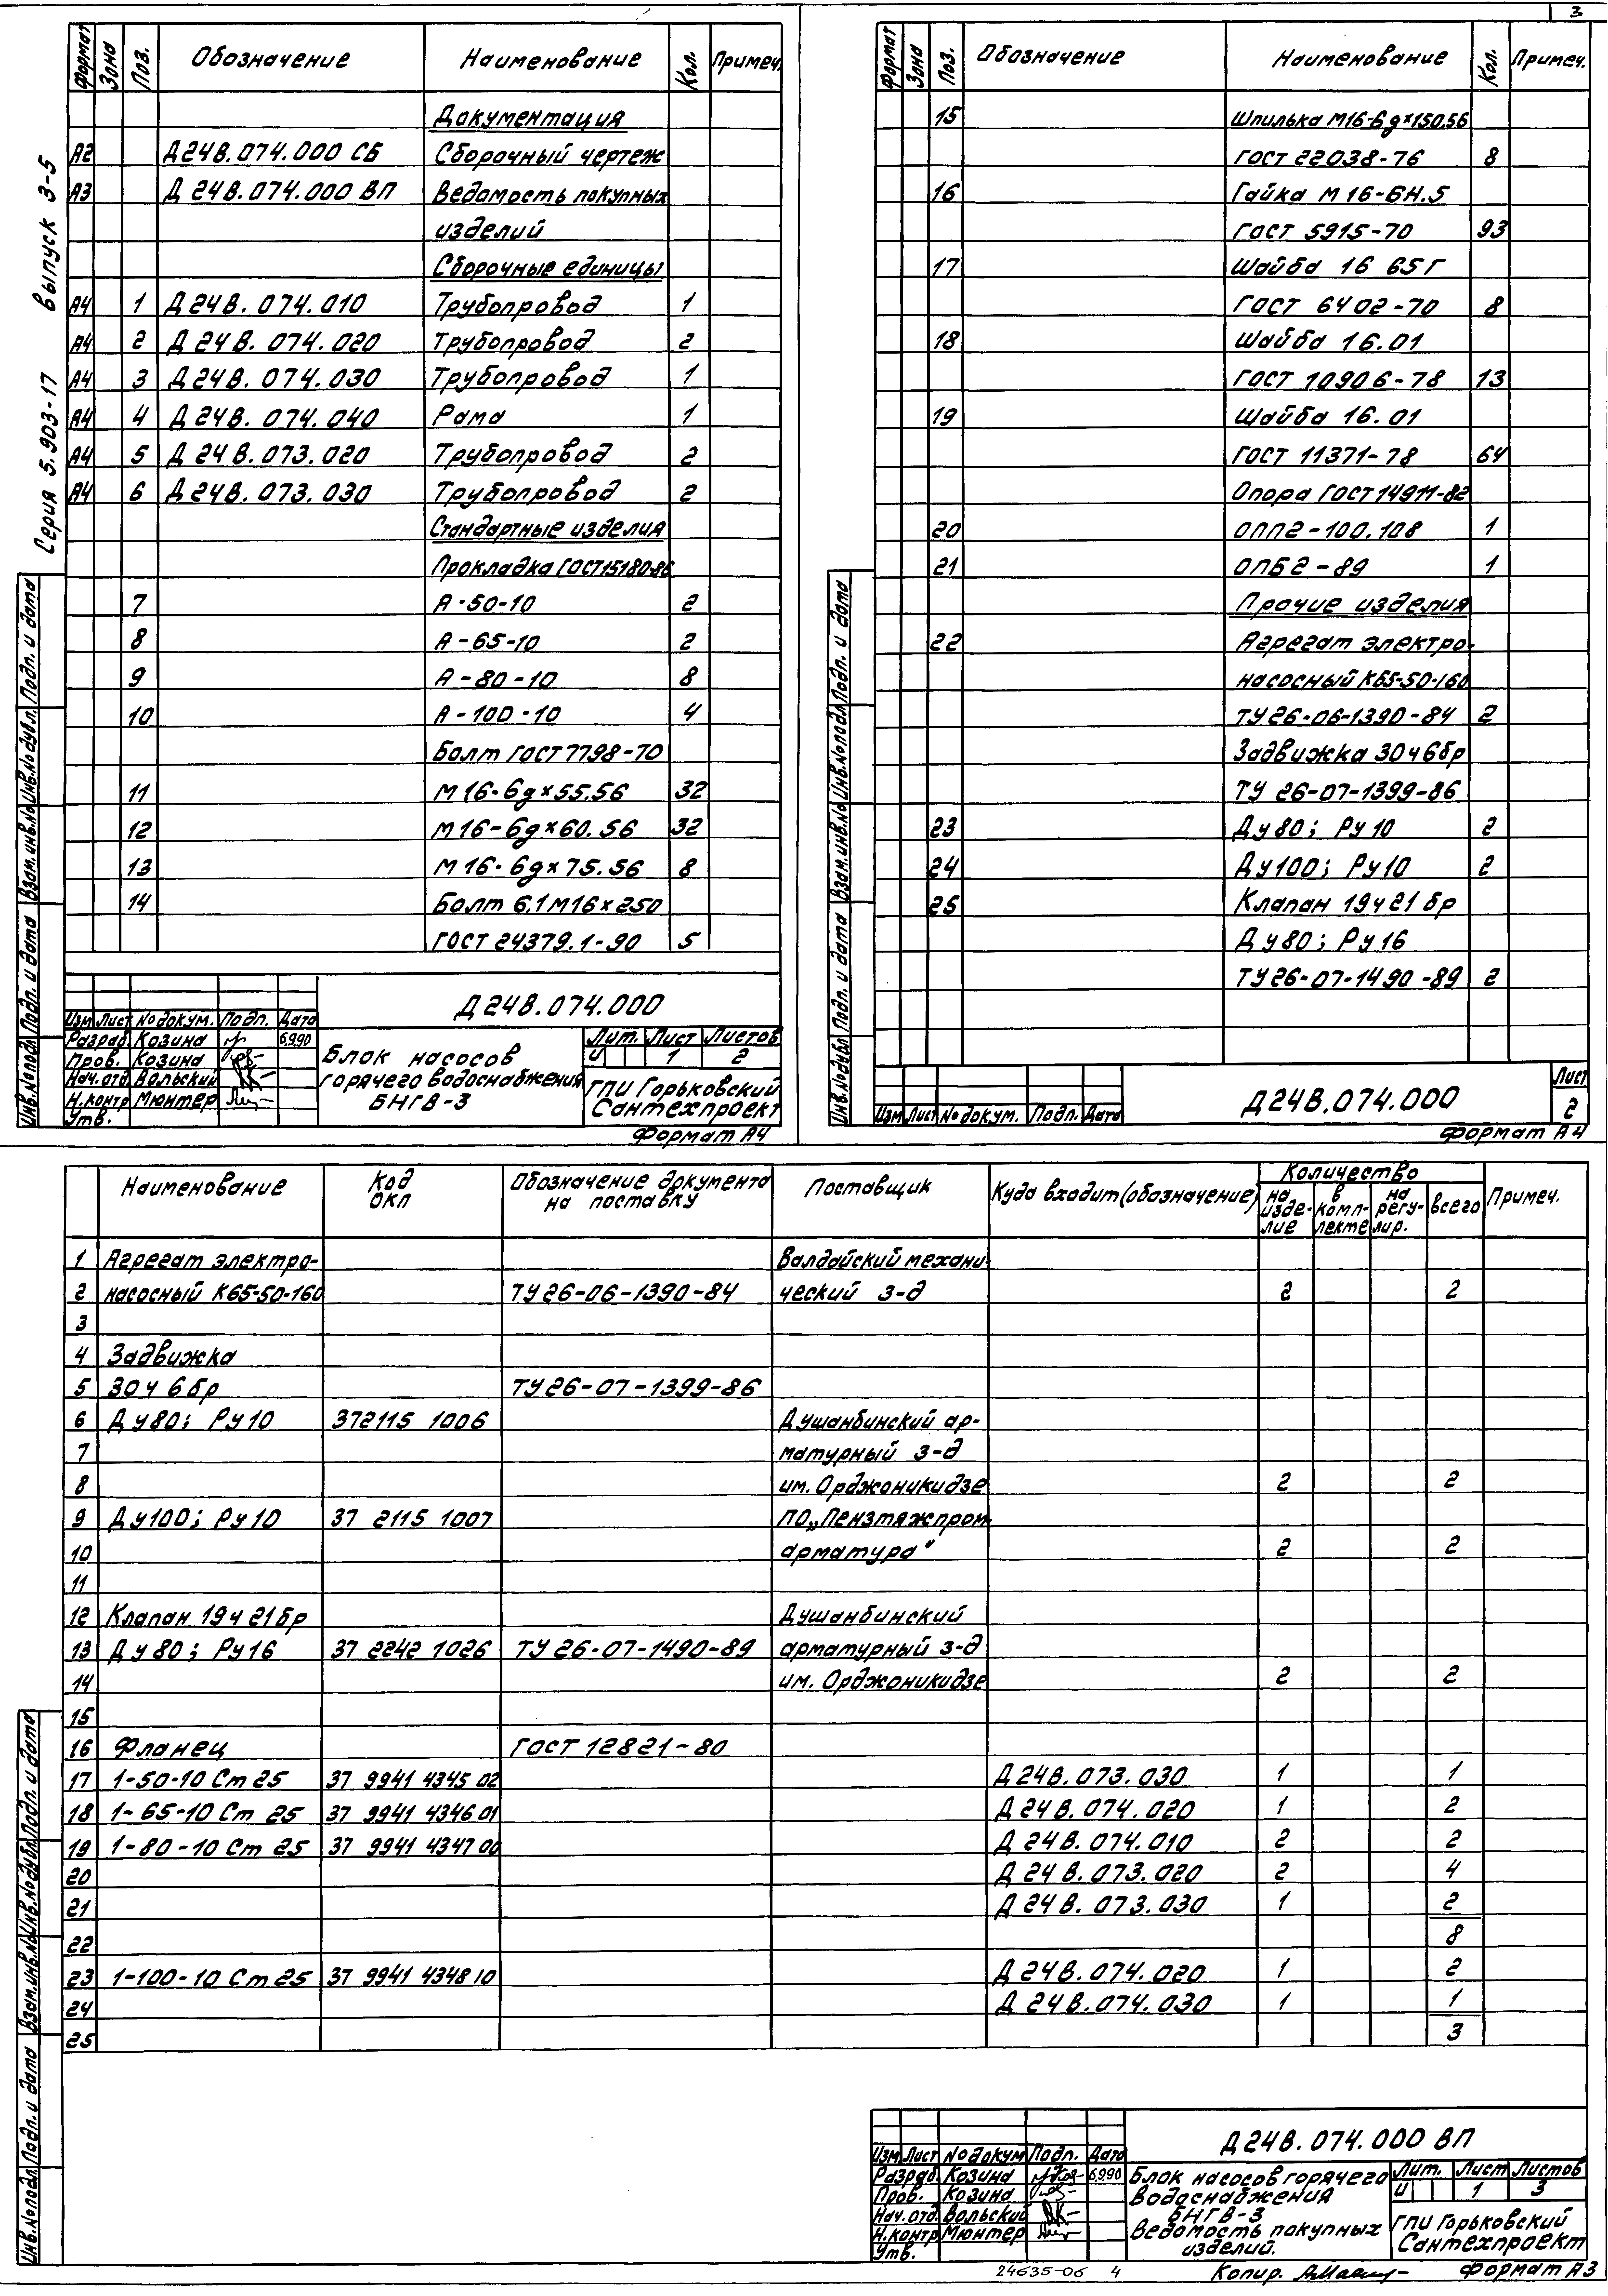 3
Серия 5.903-17 Выпуск 3-5
Формат Зона Поз. Обозначение Наименование Кол. Примеч.
Документация
А2 Д24В.074.000 СБ Сборочный чертеж
А3 Д24В.074.000 ВП Ведомость покупных
изделий
Сборочные единицы
А4 1 Д24В.074.010 Трубопровод 1
А4 2 Д24В.074.020 Трубопровод 2
А4 3 Д24В.074.030 Трубопровод 1
А4 4 Д24В.074.040 Рама 1
А4 5 Д24В.073.020 Трубопровод 2
А4 6 Д24В.073.030 Трубопровод 2
Стандартные изделия
Прокладка ГОСТ15180-86
7 А-50-10 2
8 А-65-10 2
9 А-80-10 8
10 А-100-10 4
Болт ГОСТ7798-70
11 М16-6g×55.56 32
12 М16-6g×60.56 32
13 М16-6g×75.56 8
14 Болт 6.1М16×250
ГОСТ 24379.1-90 5
Инв.№подл. Подп. и дата Взам.инв.№ Инв.№дубл. Подп. и дата
Д24В.074.000
Изм Лист №докум. Подп. Дата
Разраб Козина 6.9.90
Пров. Козина
Нач.отд Вольский
Н.контр Мюнтер
Утв.
Блок насосов
горячего водоснабжения
БНГВ-3
Лит. Лист Листов
И 1 2
ГПИ Горьковский
Сантехпроект
Формат А4
Формат Зона Поз. Обозначение Наименование Кол. Примеч.
15 Шпилька М16-6g×150.56
ГОСТ 22038-76 8
16 Гайка М16-6Н.5
ГОСТ 5915-70 93
17 Шайба 16 65Г
ГОСТ 6402-70 8
18 Шайба 16.01
ГОСТ 10906-78 13
19 Шайба 16.01
ГОСТ 11371-78 64
Опора ГОСТ14911-82
20 ОПП2-100.108 1
21 ОПБ2-89 1
Прочие изделия
22 Агрегат электро-
насосный К65-50-160
ТУ26-06-1390-84 2
Задвижка 30ч6бр
ТУ 26-07-1399-86
23 Ду80; Ру10 2
24 Ду100; Ру10 2
25 Клапан 19ч21бр
Ду80; Ру16
ТУ26-07-1490-89 2
Инв.№дубл Подп. и дата Взам.инв.№ Инв.№подл Подп. и дата
Изм Лист №докум. Подп. Дата
Д24В.074.000
Лист
2
Формат А4
Наименование Код ОКП Обозначение документа на поставку Поставщик Куда входит(обозначение) Количество Примеч.
на изде-лие в комп-лекте на регу-лир. всего
1 Агрегат электро- Валдайский механи-
2 насосный К65-50-160 ТУ26-06-1390-84 ческий з-д 2 2
3
4 Задвижка
5 30ч6бр ТУ26-07-1399-86
6 Ду80; Ру10 372115 1006 Душанбинский ар-
7 матурный з-д
8 им. Орджоникидзе 2 2
9 Ду100; Ру10 37 2115 1007 ПО„Пензтяжпром
10 арматура" 2 2
11
12 Клапан 19ч21бр Душанбинский
13 Ду80; Ру16 37 2242 1026 ТУ26-07-1490-89 арматурный з-д
14 им. Орджоникидзе 2 2
15
16 Фланец ГОСТ 12821-80
17 1-50-10 Ст25 37 9941 4345 02 Д24В.073.030 1 1
18 1-65-10 Ст 25 37 9941 4346 01 Д24В.074.020 1 2
19 1-80-10 Ст 25 37 9941 4347 00 Д24В.074.010 2 2
20 Д24В.073.020 2 4
21 Д24В.073.030 1 2
22 8
23 1-100-10 Ст25 37 9941 4348 10 Д24В.074.020 1 2
24 Д24В.074.030 1 1
25 3
Инв.№подл Подп. и дата Взам.инв.№ Инв.№дубл Подп. и дата
Д24В.074.000 ВП
Изм Лист №докум Подп. Дата
Разраб Козина 6.9.90
Пров. Козина
Нач.отд Вольский
Н.контр Мюнтер
Утв.
Блок насосов горячего
водоснабжения
БНГВ-3
Ведомость покупных
изделий.
Лит. Лист Листов
И 1 3
ГПИ Горьковский
Сантехпроект
24635-06 4 Копир. Формат А3